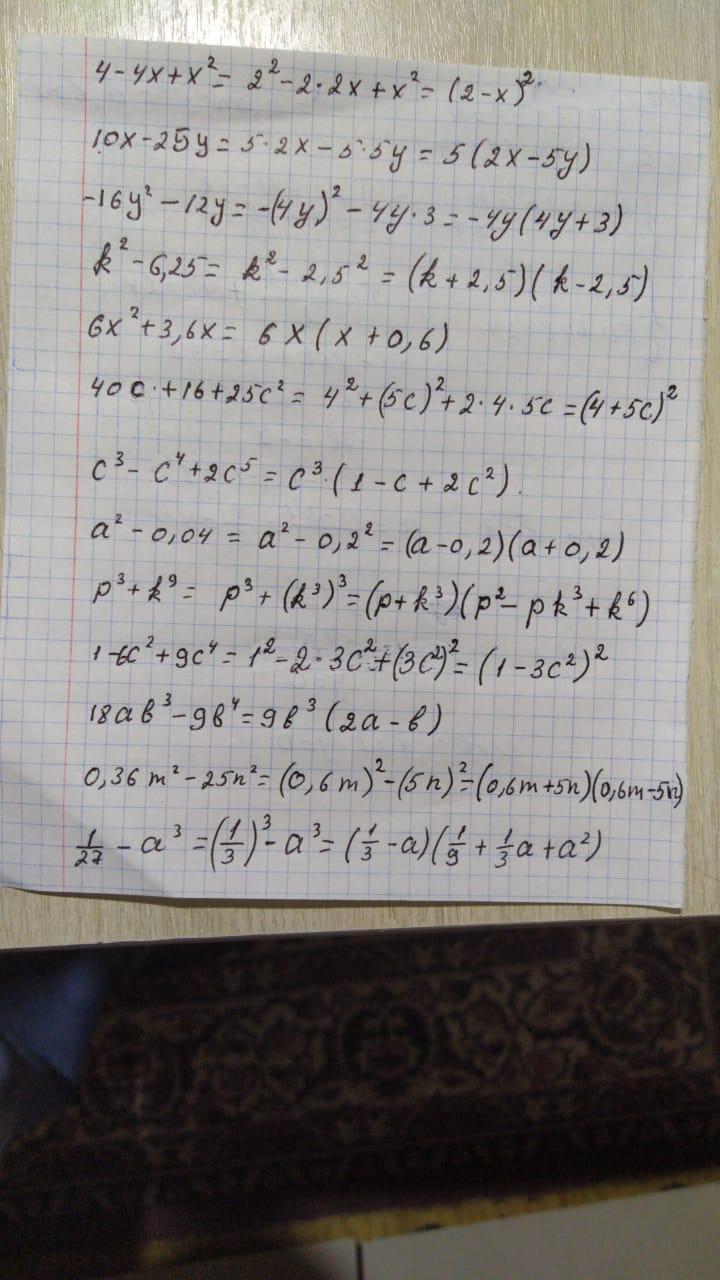 4-4x+x²= 2²-2·2x+x²= (2-x)²
10x-25y=5·2x-5·5y=5(2x-5y)
-16y²-12y=-(4y)²-4y·3=-4y(4y+3)
k²-6,25= k²-2,5²=(k+2,5)(k-2,5)
6x²+3,6x= 6x(x+0,6)
40c+16+25c²= 4²+(5c)²+2·4·5c=(4+5c)²
c³-c⁴+2c⁵=c³·(1-c+2c²).
a²-0,04=a²-0,2²=(a-0,2)(a+0,2)
p³+k⁹= p³+(k³)³=(p+k³)(p²-pk³+k⁶)
1-6c²+9c⁴=1²-2·3c²+(3c²)²=(1-3c²)²
18ab³-9b⁴=9b³(2a-b)
0,36m²-25n²=(0,6m)²-(5n)²=(0,6m+5n)(0,6m-5n)
1/27-a³=(1/3)³-a³=(1/3-a)(1/9+1/3a+a²)